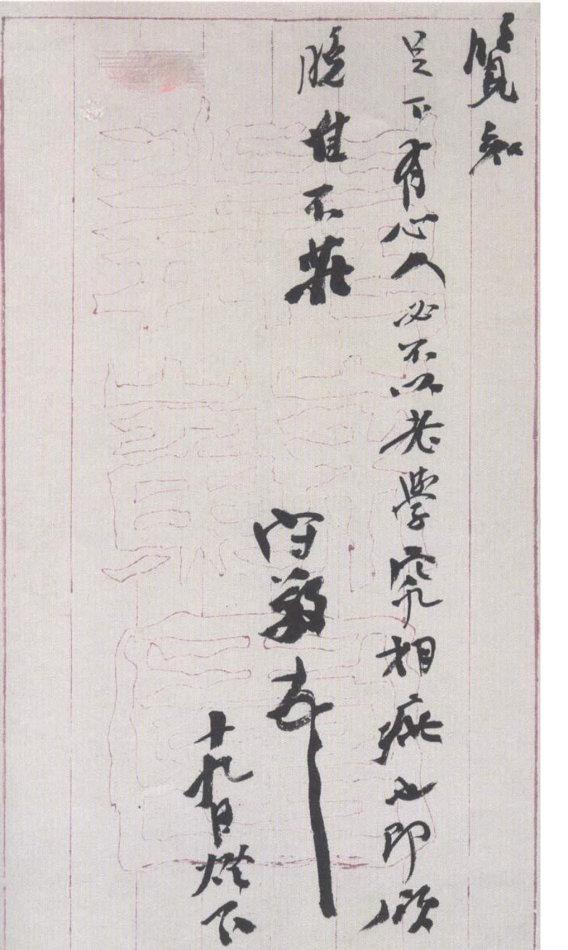 覽知
足下有心人必不以老學究相疵也即頌
勝佳不莊
守敬
十九日燈下